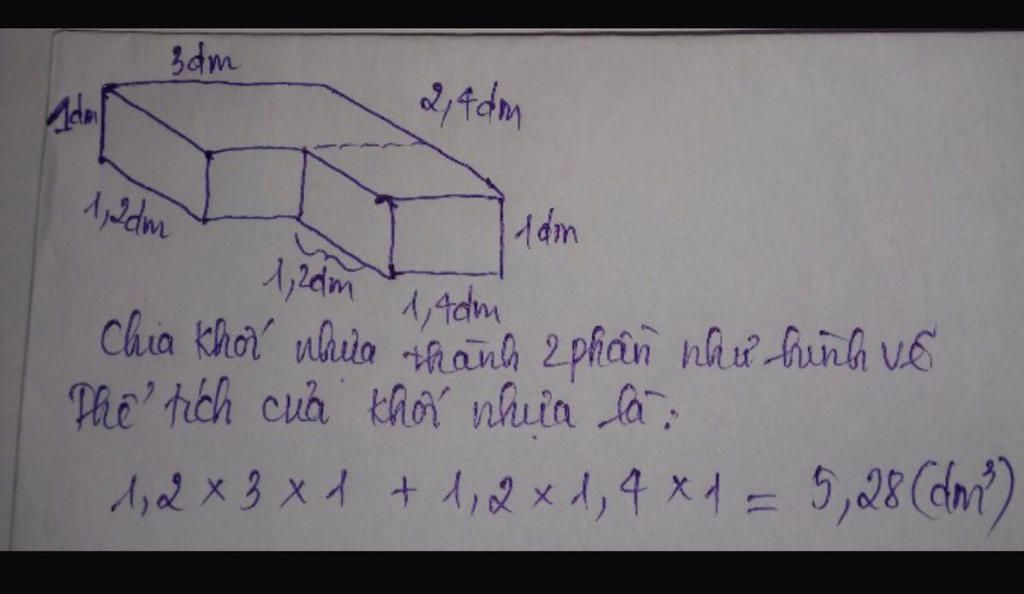 3dm
2,4dm
1dm
1,2dm
1dm
1,2dm
1,4dm
Chia khối nhựa thành 2 phần như hình vẽ
Thể tích của khối nhựa là:
1,2 × 3 × 1 + 1,2 × 1,4 × 1 = 5,28 (dm³)